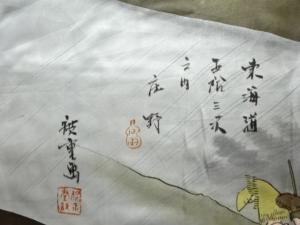 東海道
五拾三次
之内
庄野
白雨
廣重画